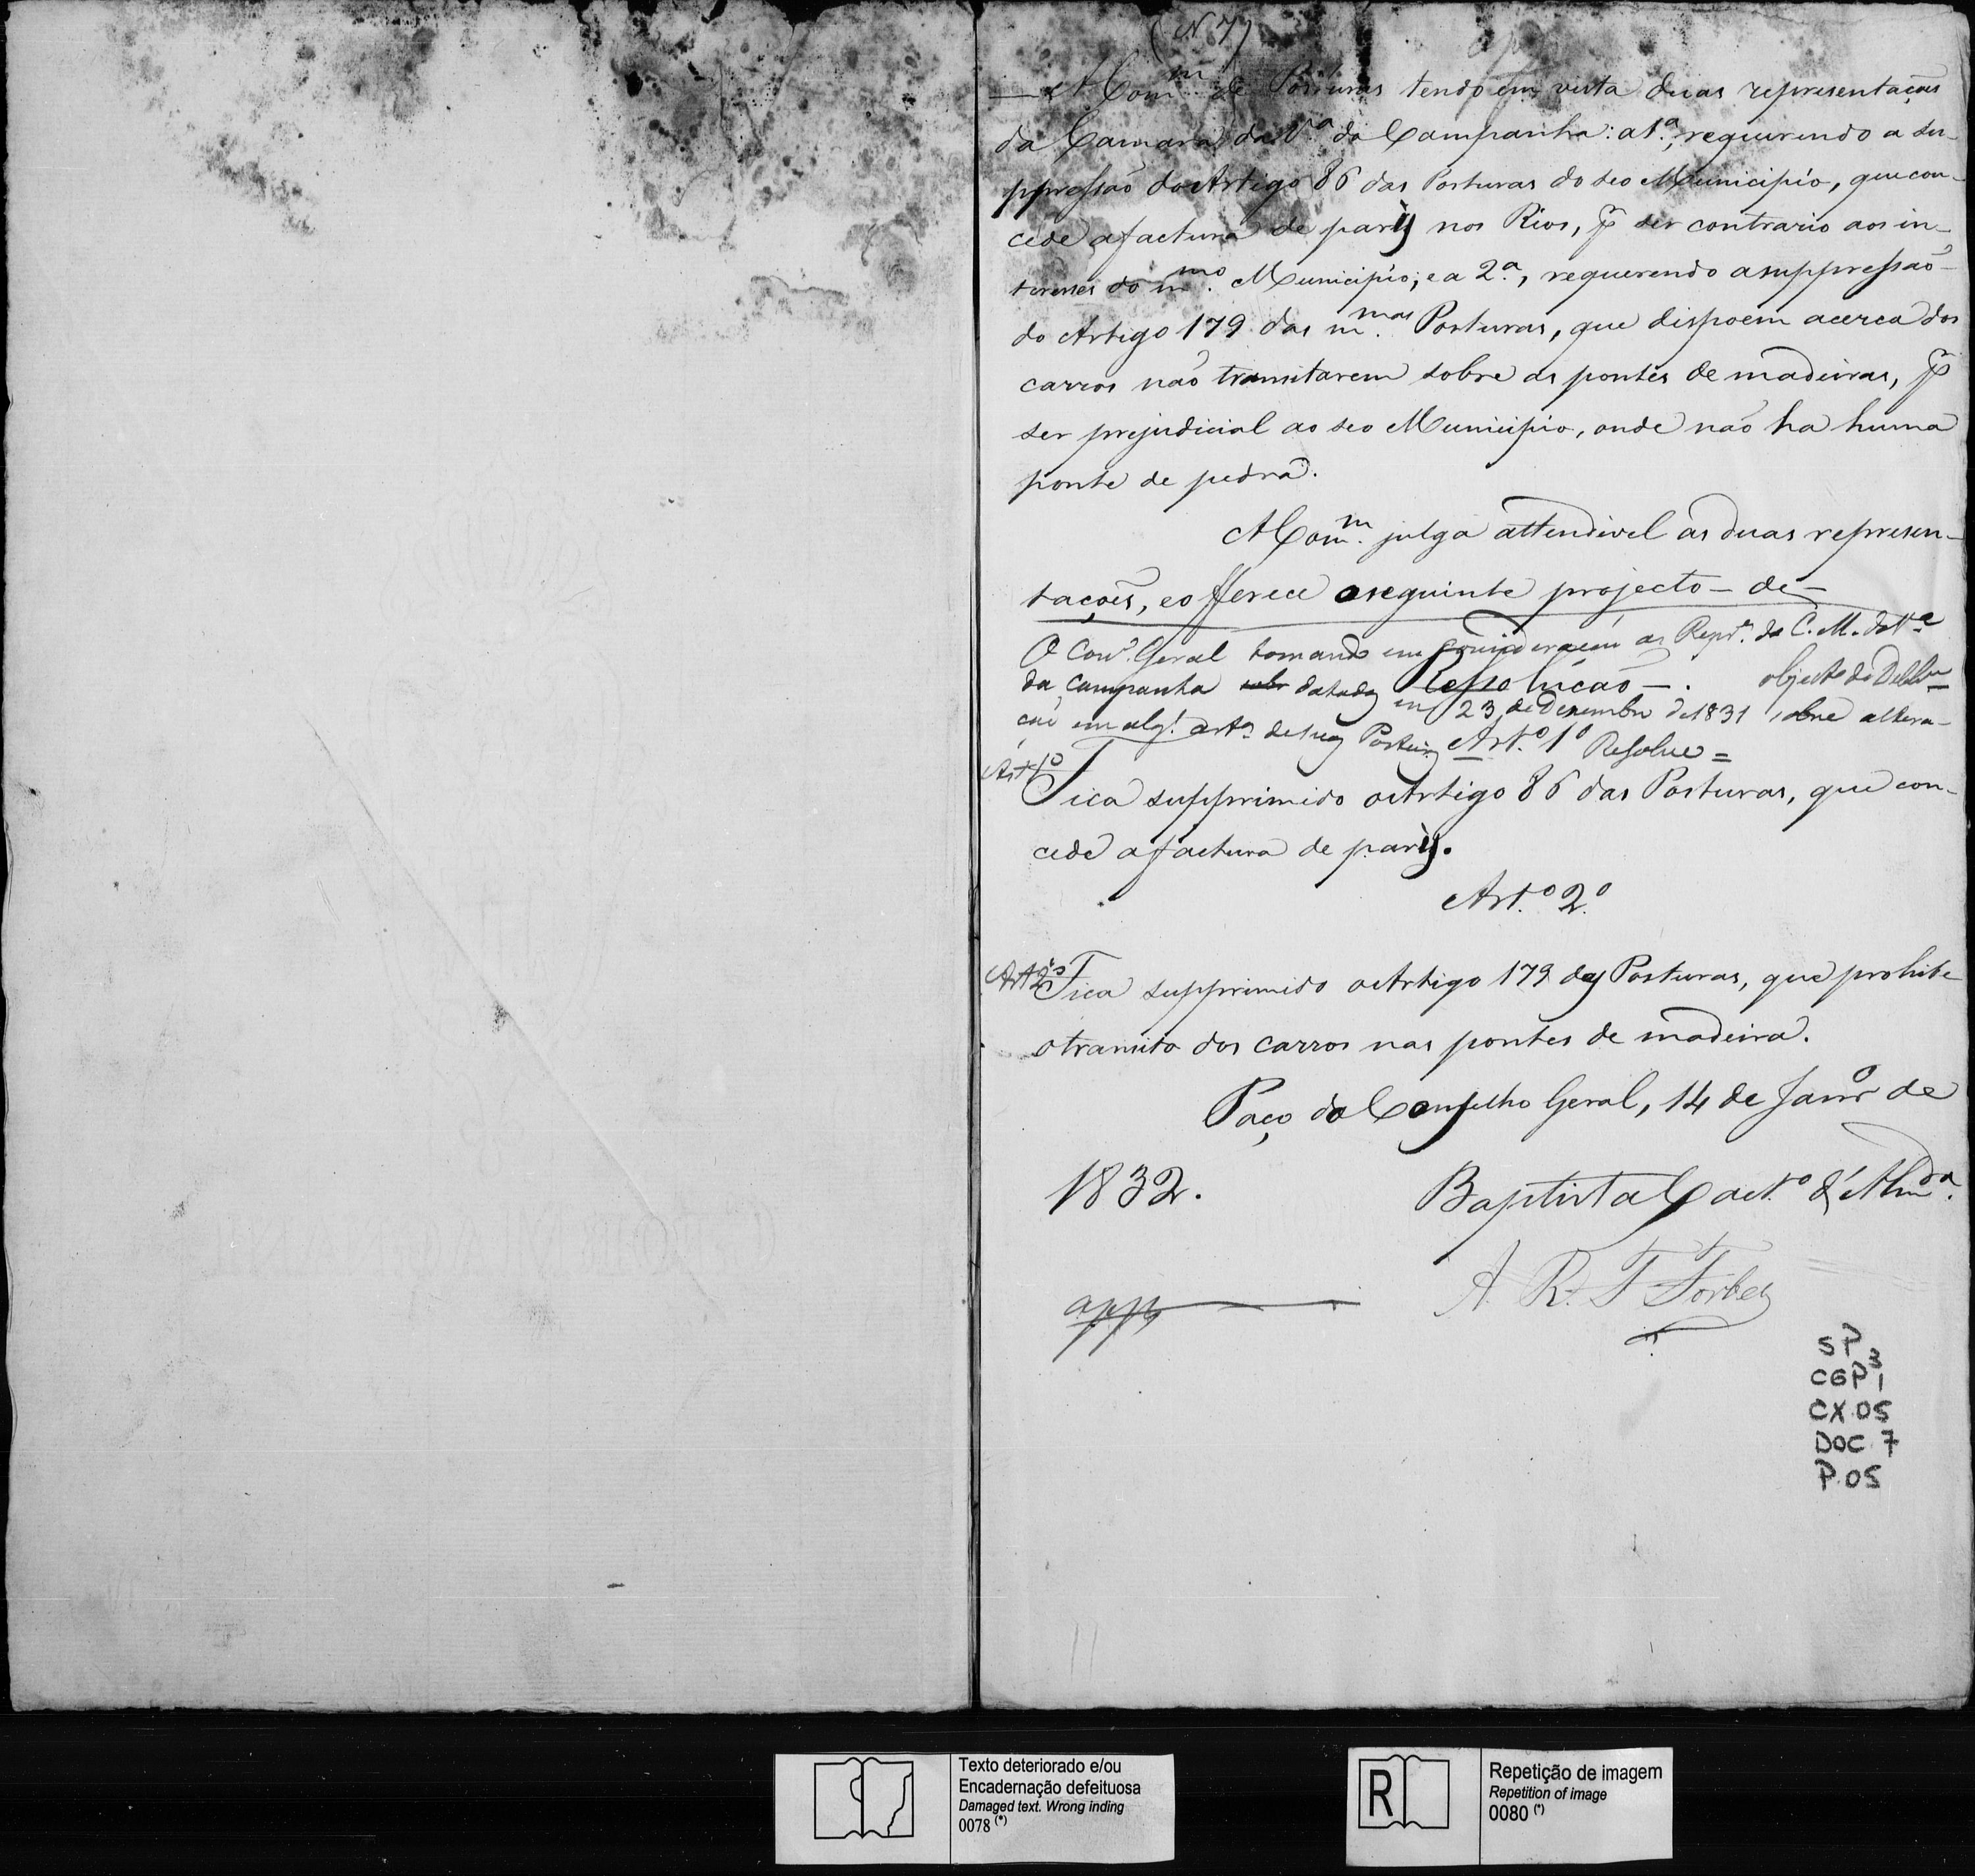 (N 7)
A Com.m de Posturas tendo em vista duas representações
da Camara da V.a da Campanha: a 1.a, requerendo a su-
ppressão do Artigo 86 das Posturas do seo Municipio, que con-
cede a factura de parys nos Rios, p.r ser contrario aos in-
teresses do m.mo Municipio; e a 2.a, requerendo a suppressão
do Artigo 179 das m.mas Posturas, que dispoem acerca dos
carros não transitarem sobre as pontes de madeiras, p.r
ser prejudicial ao seo Municipio, onde não ha huma
ponte de pedra.
A Com.m julga attendivel as duas represen-
tações, e offerece o seguinte projecto - de -
O Con.o Geral tomando em consideração as Repr.es da C. M. da V.a
da Campanha sobr datadas em 23 de Dezembro de 1831 sobre altera-
Resolução - .
objecto de
ção em alg.s art.os de suas Posturas Resolve =
Art.o 1o
Art 1o
Fica supprimido o Artigo 86 das Posturas, que con-
cede a factura de parys.
Art.o 2.o
Art 2o
Fica supprimido o Artigo 179 das Posturas, que prohibe
o transito dos carros nas pontes de madeira.
Paço do Conselho Geral, 14 de Janr.o de
1832.
Baptista Caet.o d'Alm.da
A. R. F Forbes
app
SP
CGP 1 3
CX 05
DOC. 7
P. 05
Texto deteriorado e/ou
Encadernação defeituosa
Damaged text. Wrong inding
0078 (*)
R
Repetição de imagem
Repetition of image
0080 (*)